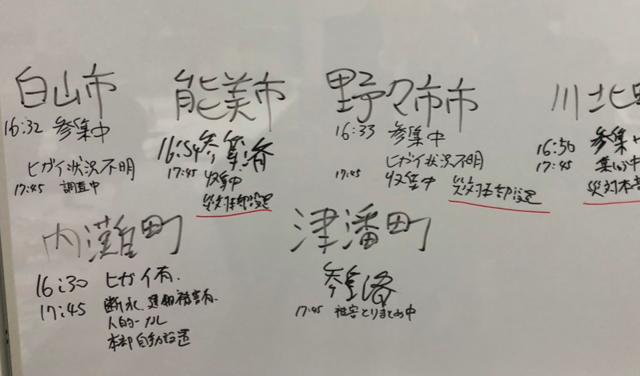 白山市
16:32 参集中
ヒガイ状況不明
17:45 調査中
能美市
16:54 参集済
17:45 収集中
災対本部設置
野々市市
16:33 参集中
ヒガイ状況不明
17:45 収集中
災対本部設置
川北
16:50 参集
17:45 集
災対本
内灘町
16:30 ヒガイ有.
17:45 断水 建物被害有.
人的ーナシ
本部自動設置
津幡町
参集済
17:45 被害とりまとめ中